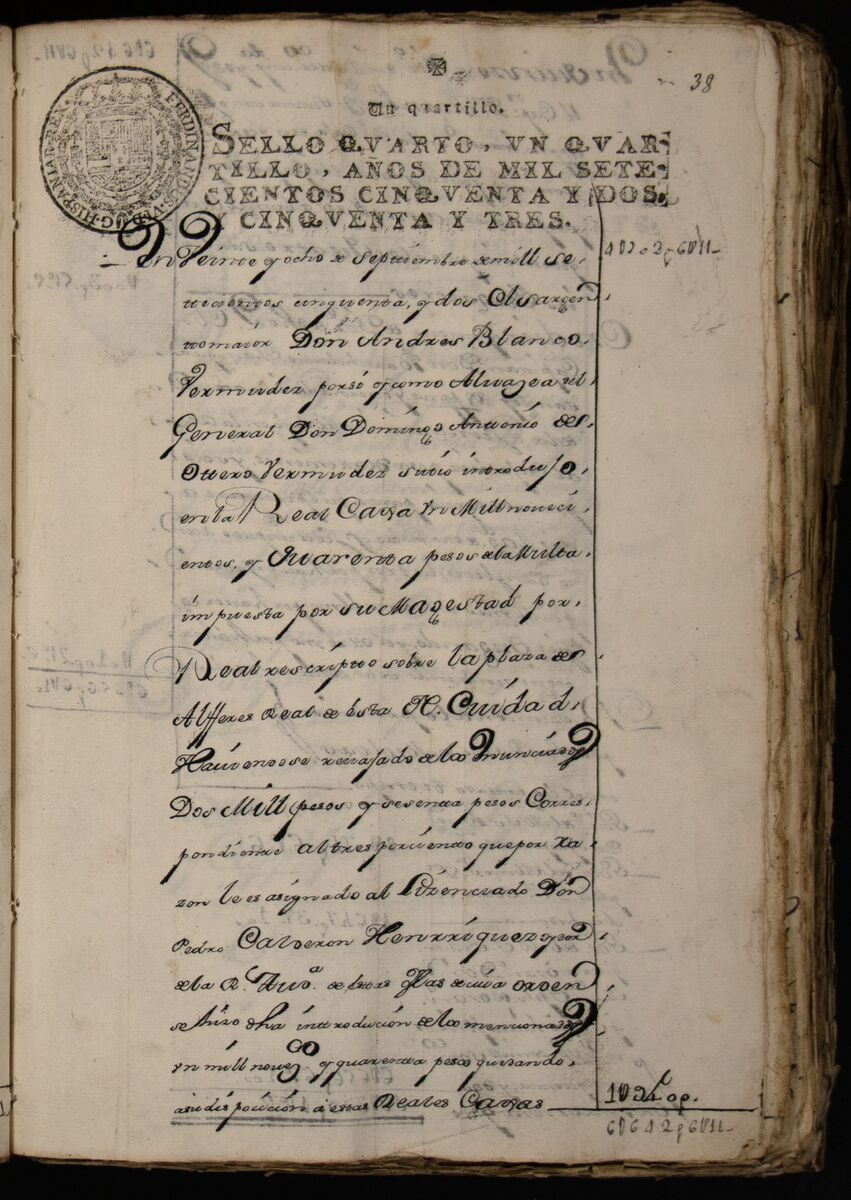 38
Un quartillo.
SELLO QVARTO, VN QVAR-
TILLO, AÑOS DE MIL SETE-
CIENTOS CINQVENTA Y DOS,
Y CINQVENTA Y TRES.
FERDINANDUS VI D G HISPANIAR REX
En Veinte y ocho de septiembre de mill se,
ttecientos cinquenta, y dos El sargen
ttomaior Don Andres Blanco
Vermudez por si y como Alvazea del,
General Don Domingo Antonio de
Ottero Vermudez su tio introdujo,
en la Real Caxa Vn Mill noveci
entos, y Quarenta pesos de la Multa,
impuesta por su Magestad por,
Real rescripto sobre la plaza de
Alfferes Real de esta N. Ciudad,
Haviendose revajado de los enunciados
Dos Mill (pesos) y sesenta pesos Corres,
pondiente al tres por ciento que por ra
zon le es asignado al Lizenciado Don
Pedro Calderon Henrriquez oydor
de la R.l Aud.a de estas Yslas de cuia orden
se hizo dha inttroducion de los mencionados
vn mill novez.os y quarenta pesos quedando,
a su disposicion en estas Reales Caxas
1094 op.